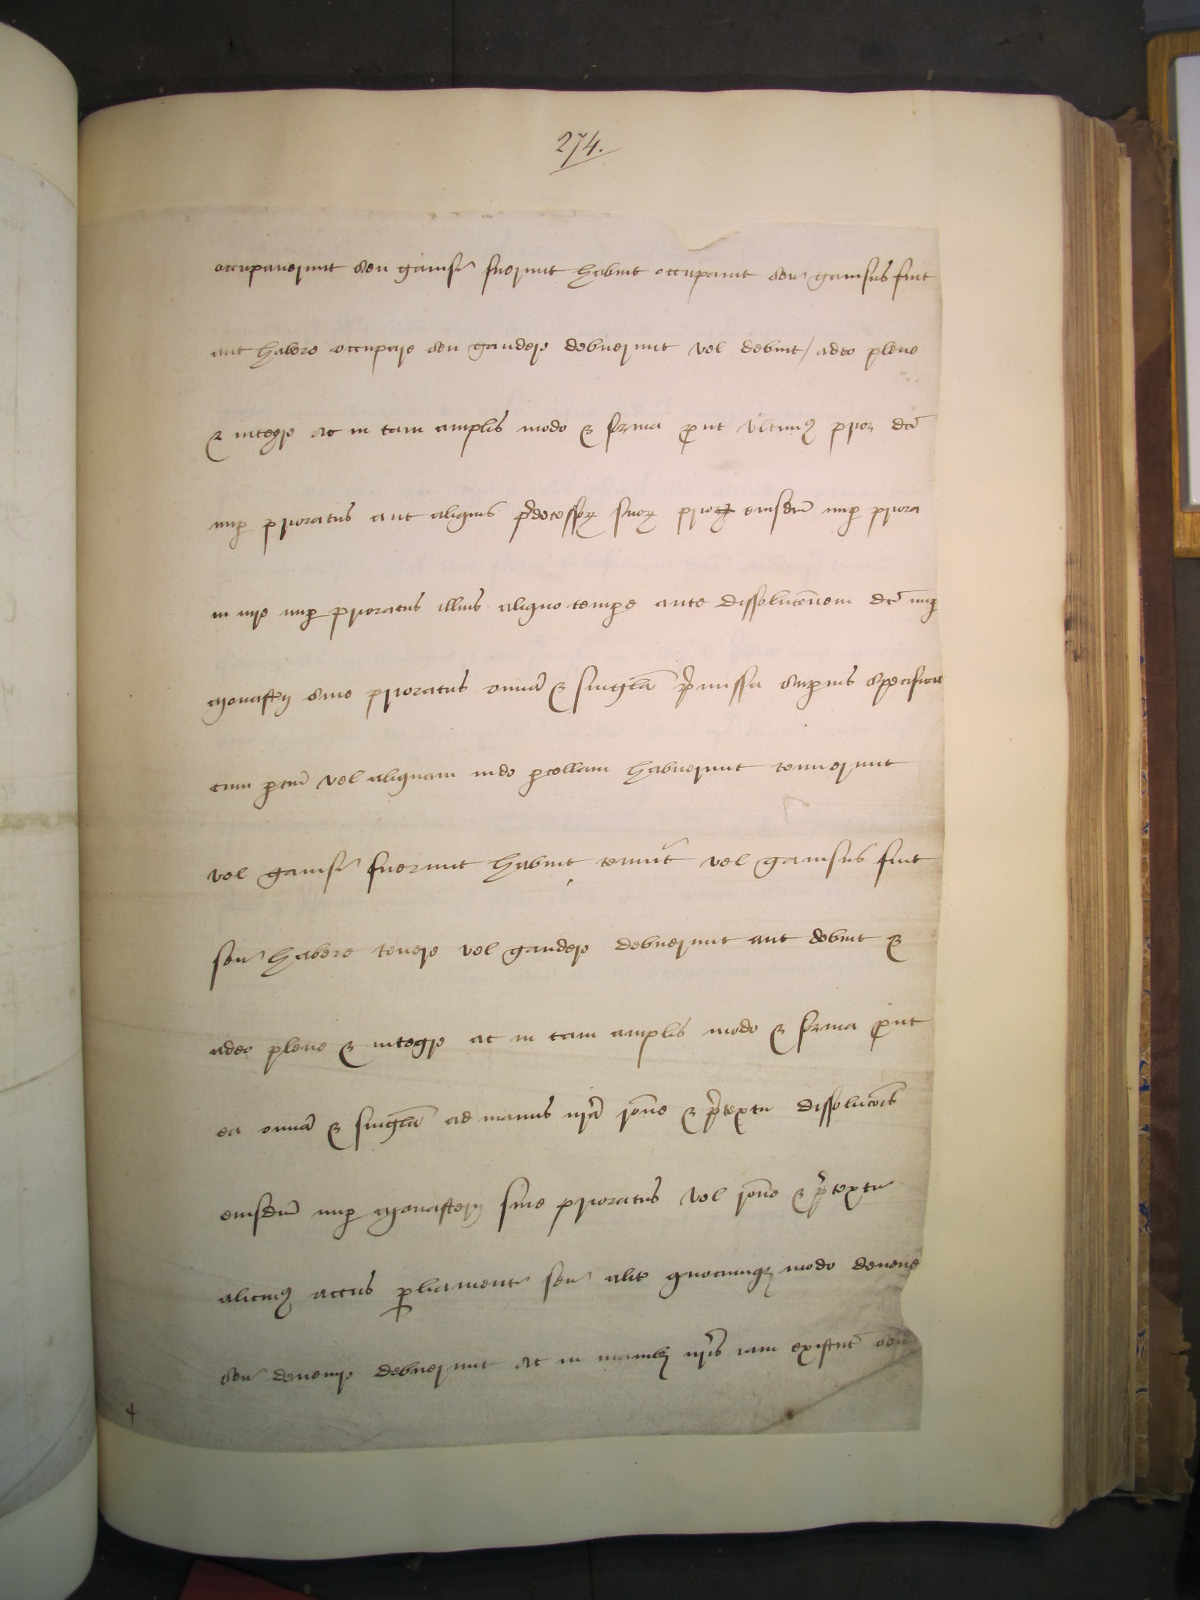 274.
occupauerunt seu gauis' fuerunt habent occupant seu gauisus sint
aut habere occupare seu gaudere debuerunt vel debent / adeo plene
& integre ac in tam amplis modo & forma put vltimus prior dci
nup prioratus aut aliquis pdecessor suor prior eiusdem nup priora
in iure nup prioratus illius aliquo tempe ante dissolucoem dci nup
Monasterij siue prioratus omia & singla pmissa superius specificat
cum ptin vel aliquam inde pcellam habuerunt tenuerunt
vel gauis' fuerunt habent tenent vel gauisus sint
seu habere tenere vel gaudere debuerunt aut debent &
adeo plene & integre ac in tam amplis modo & forma put
ea omia & singla ad manus nras rone & ptextu dissolucois
eiusdem nup Monasterij siue prioratus vel rone & ptextu
alicuius actus pliamenti seu alit quocumq modo devene
seu devenire debuerunt ac in manibz nris iam existunt seu
4